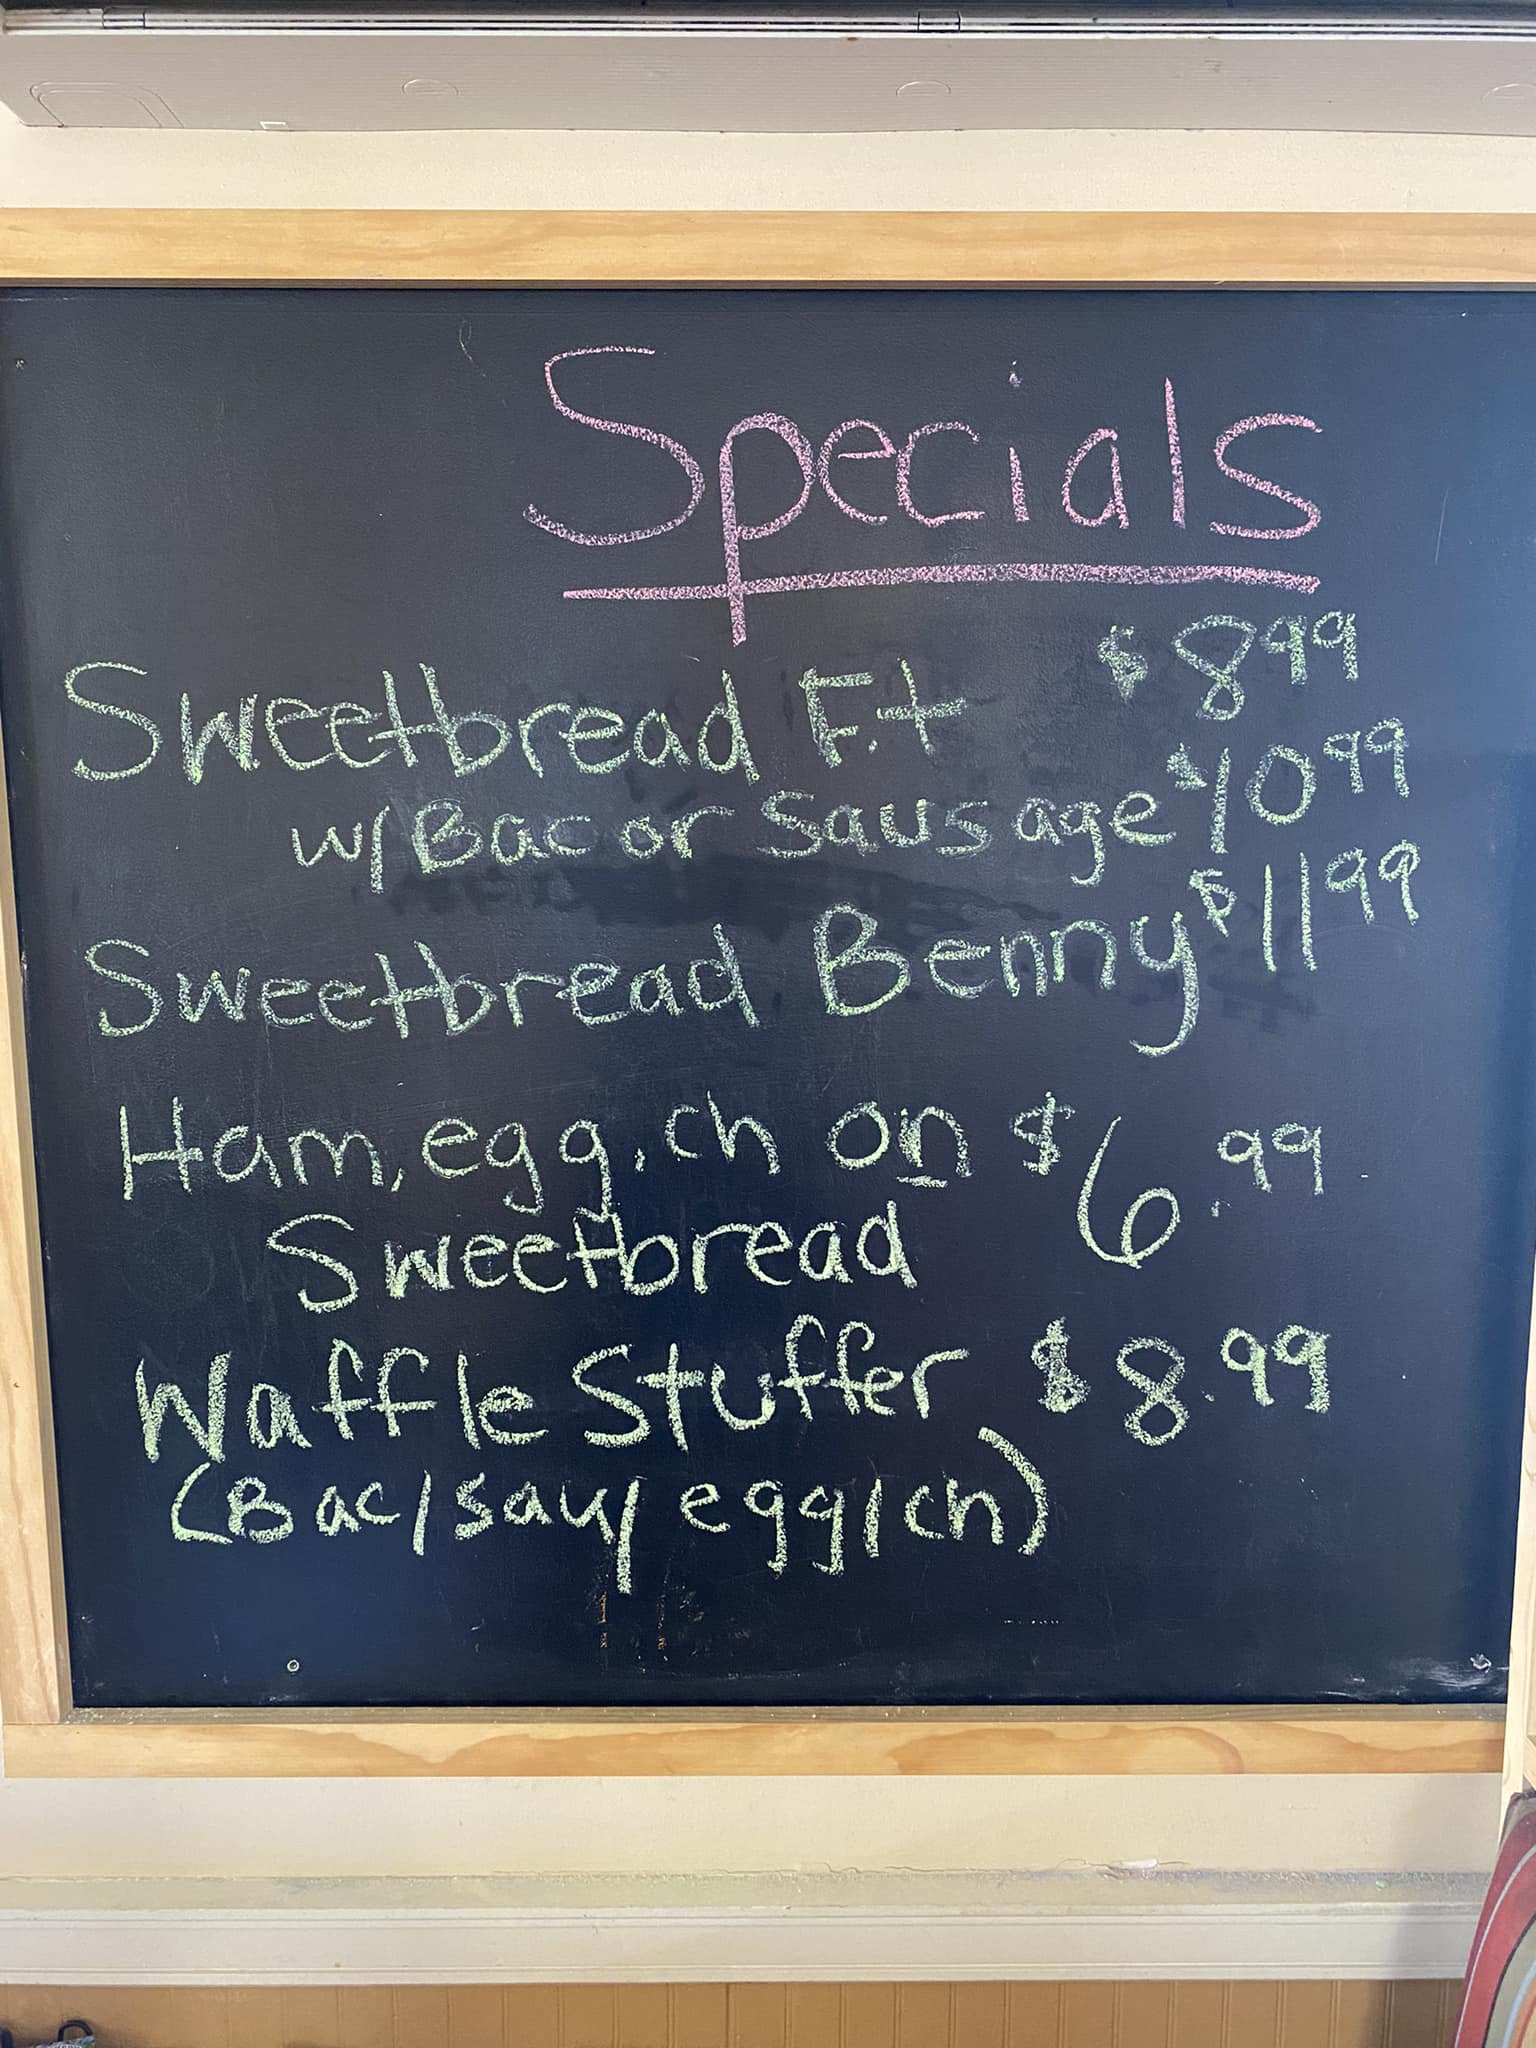 Specials
Sweetbread F.t $8.99
w/Bac or Sausage $10.99
Sweetbread Benny $11.99
Ham, egg, ch on $6.99
Sweetbread
Waffle Stuffer $8.99
(Bac/sau/egg/ch)